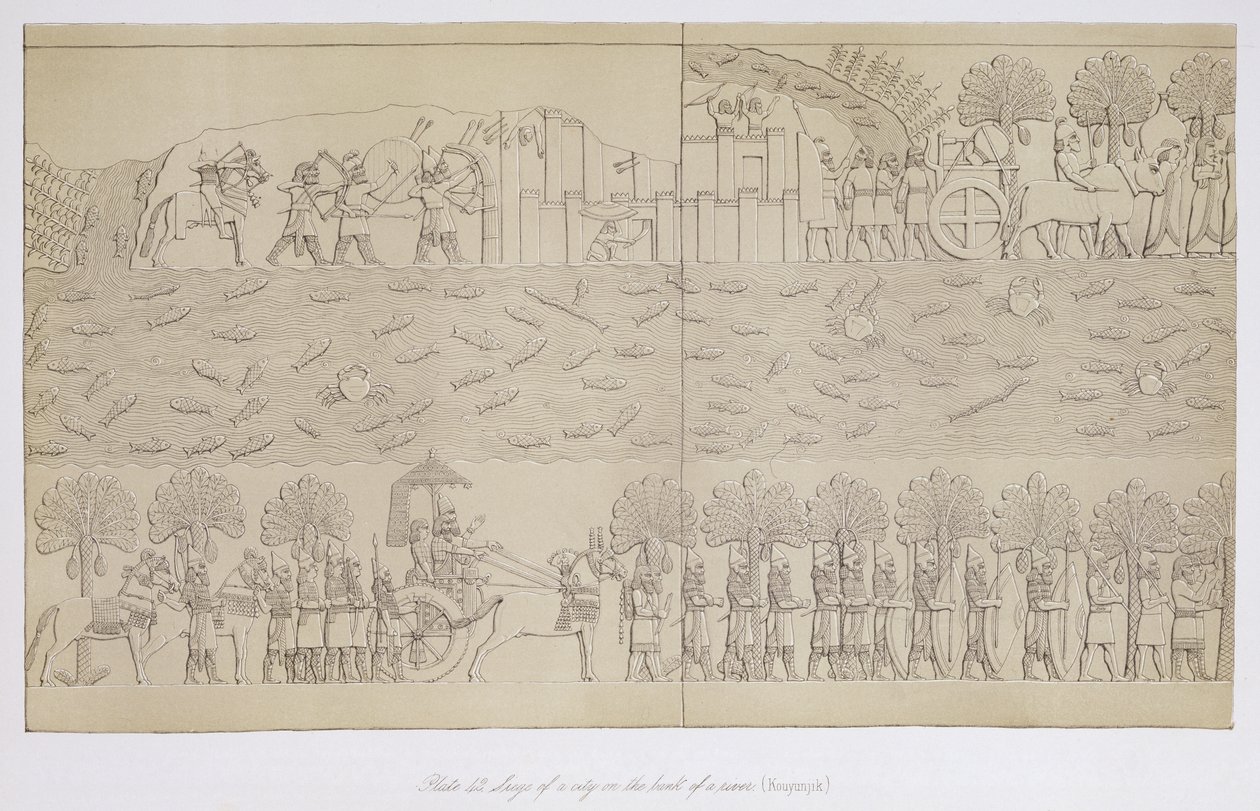 Plate 42. Siege of a city on the bank of a river. (Kouyunjik)